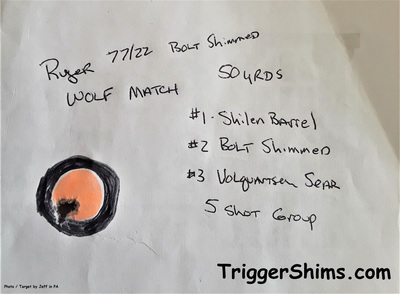 Ruger 77/22 Bolt Shimmed
Wolf Match
50 yrds
#1 - Shilen Barrel
#2 Bolt Shimmed
#3 Volquartsen Sear
5 Shot Group
Photo / Target by Jeff in PA
TriggerShims.com